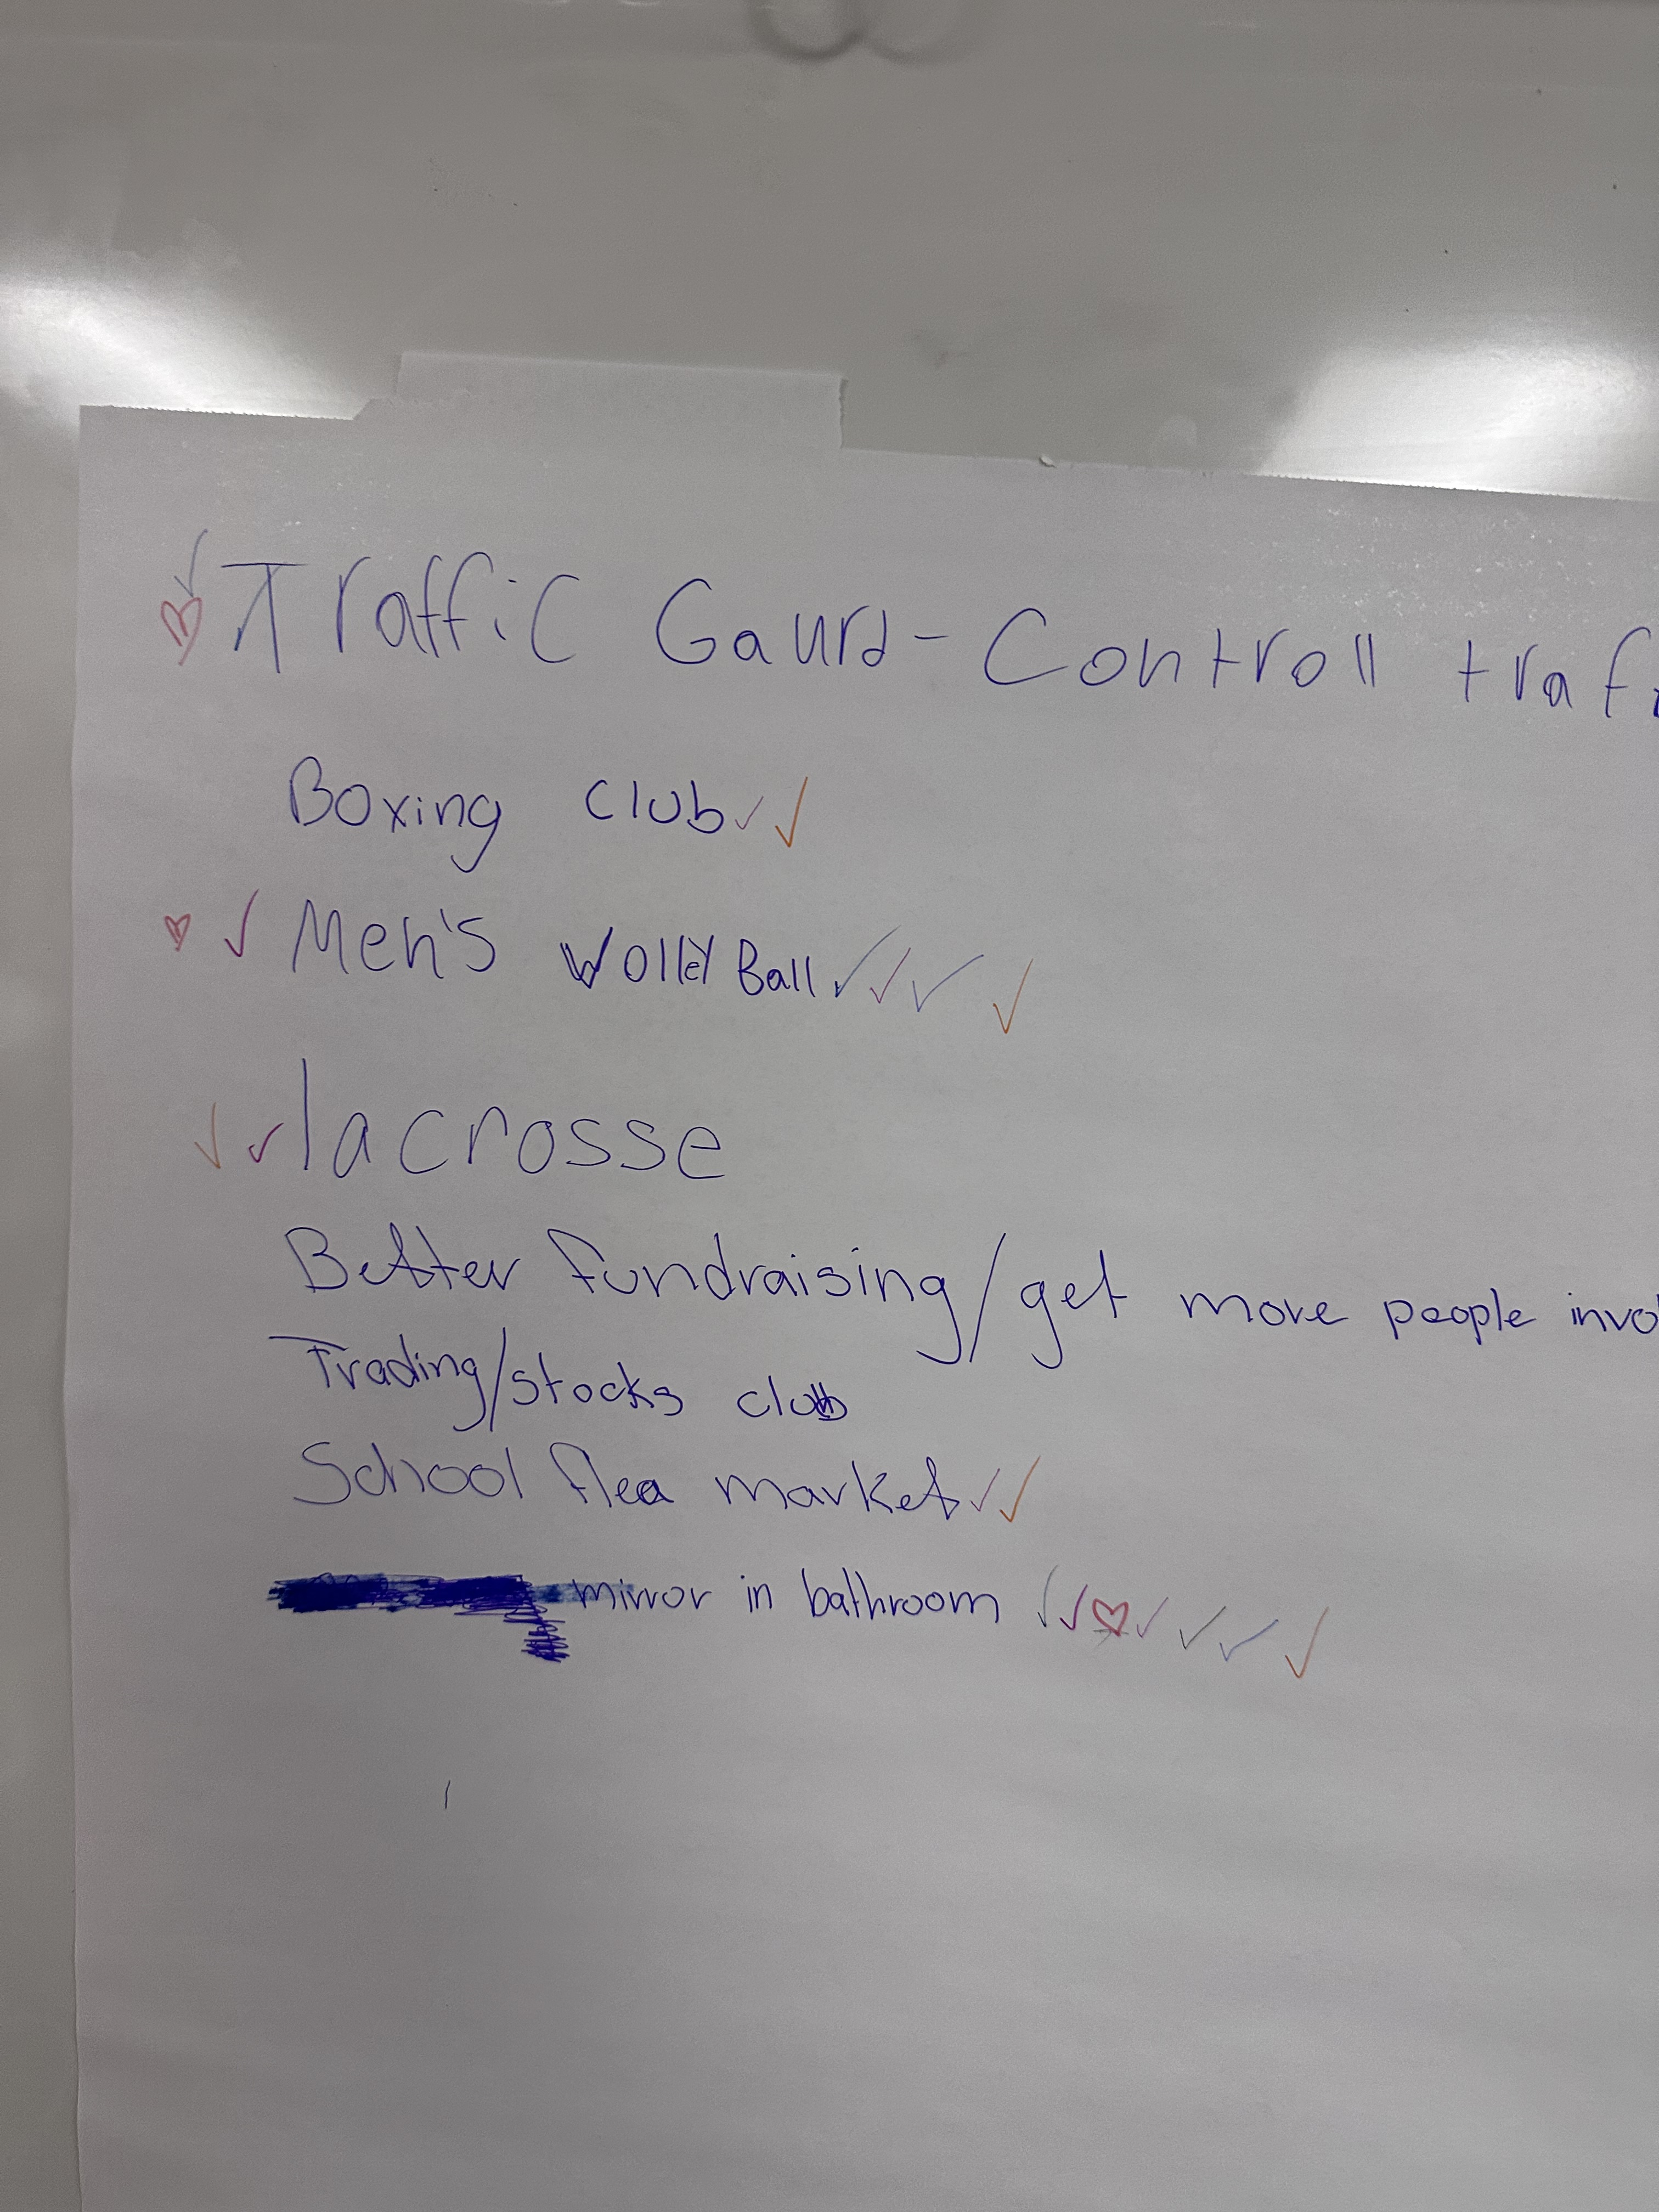 ♡ ✓ Traffic Gaurd - Controll traf
Boxing club ✓ ✓
♡ ✓ Men's WolleY Ball ✓ ✓ ✓ ✓
✓ ✓ lacrosse
Better fundraising/get more people invo
Trading/stocks club
School flea market ✓ ✓
mirror in bathroom ✓ ✓ ♡ ✓ ✓ ✓ ✓